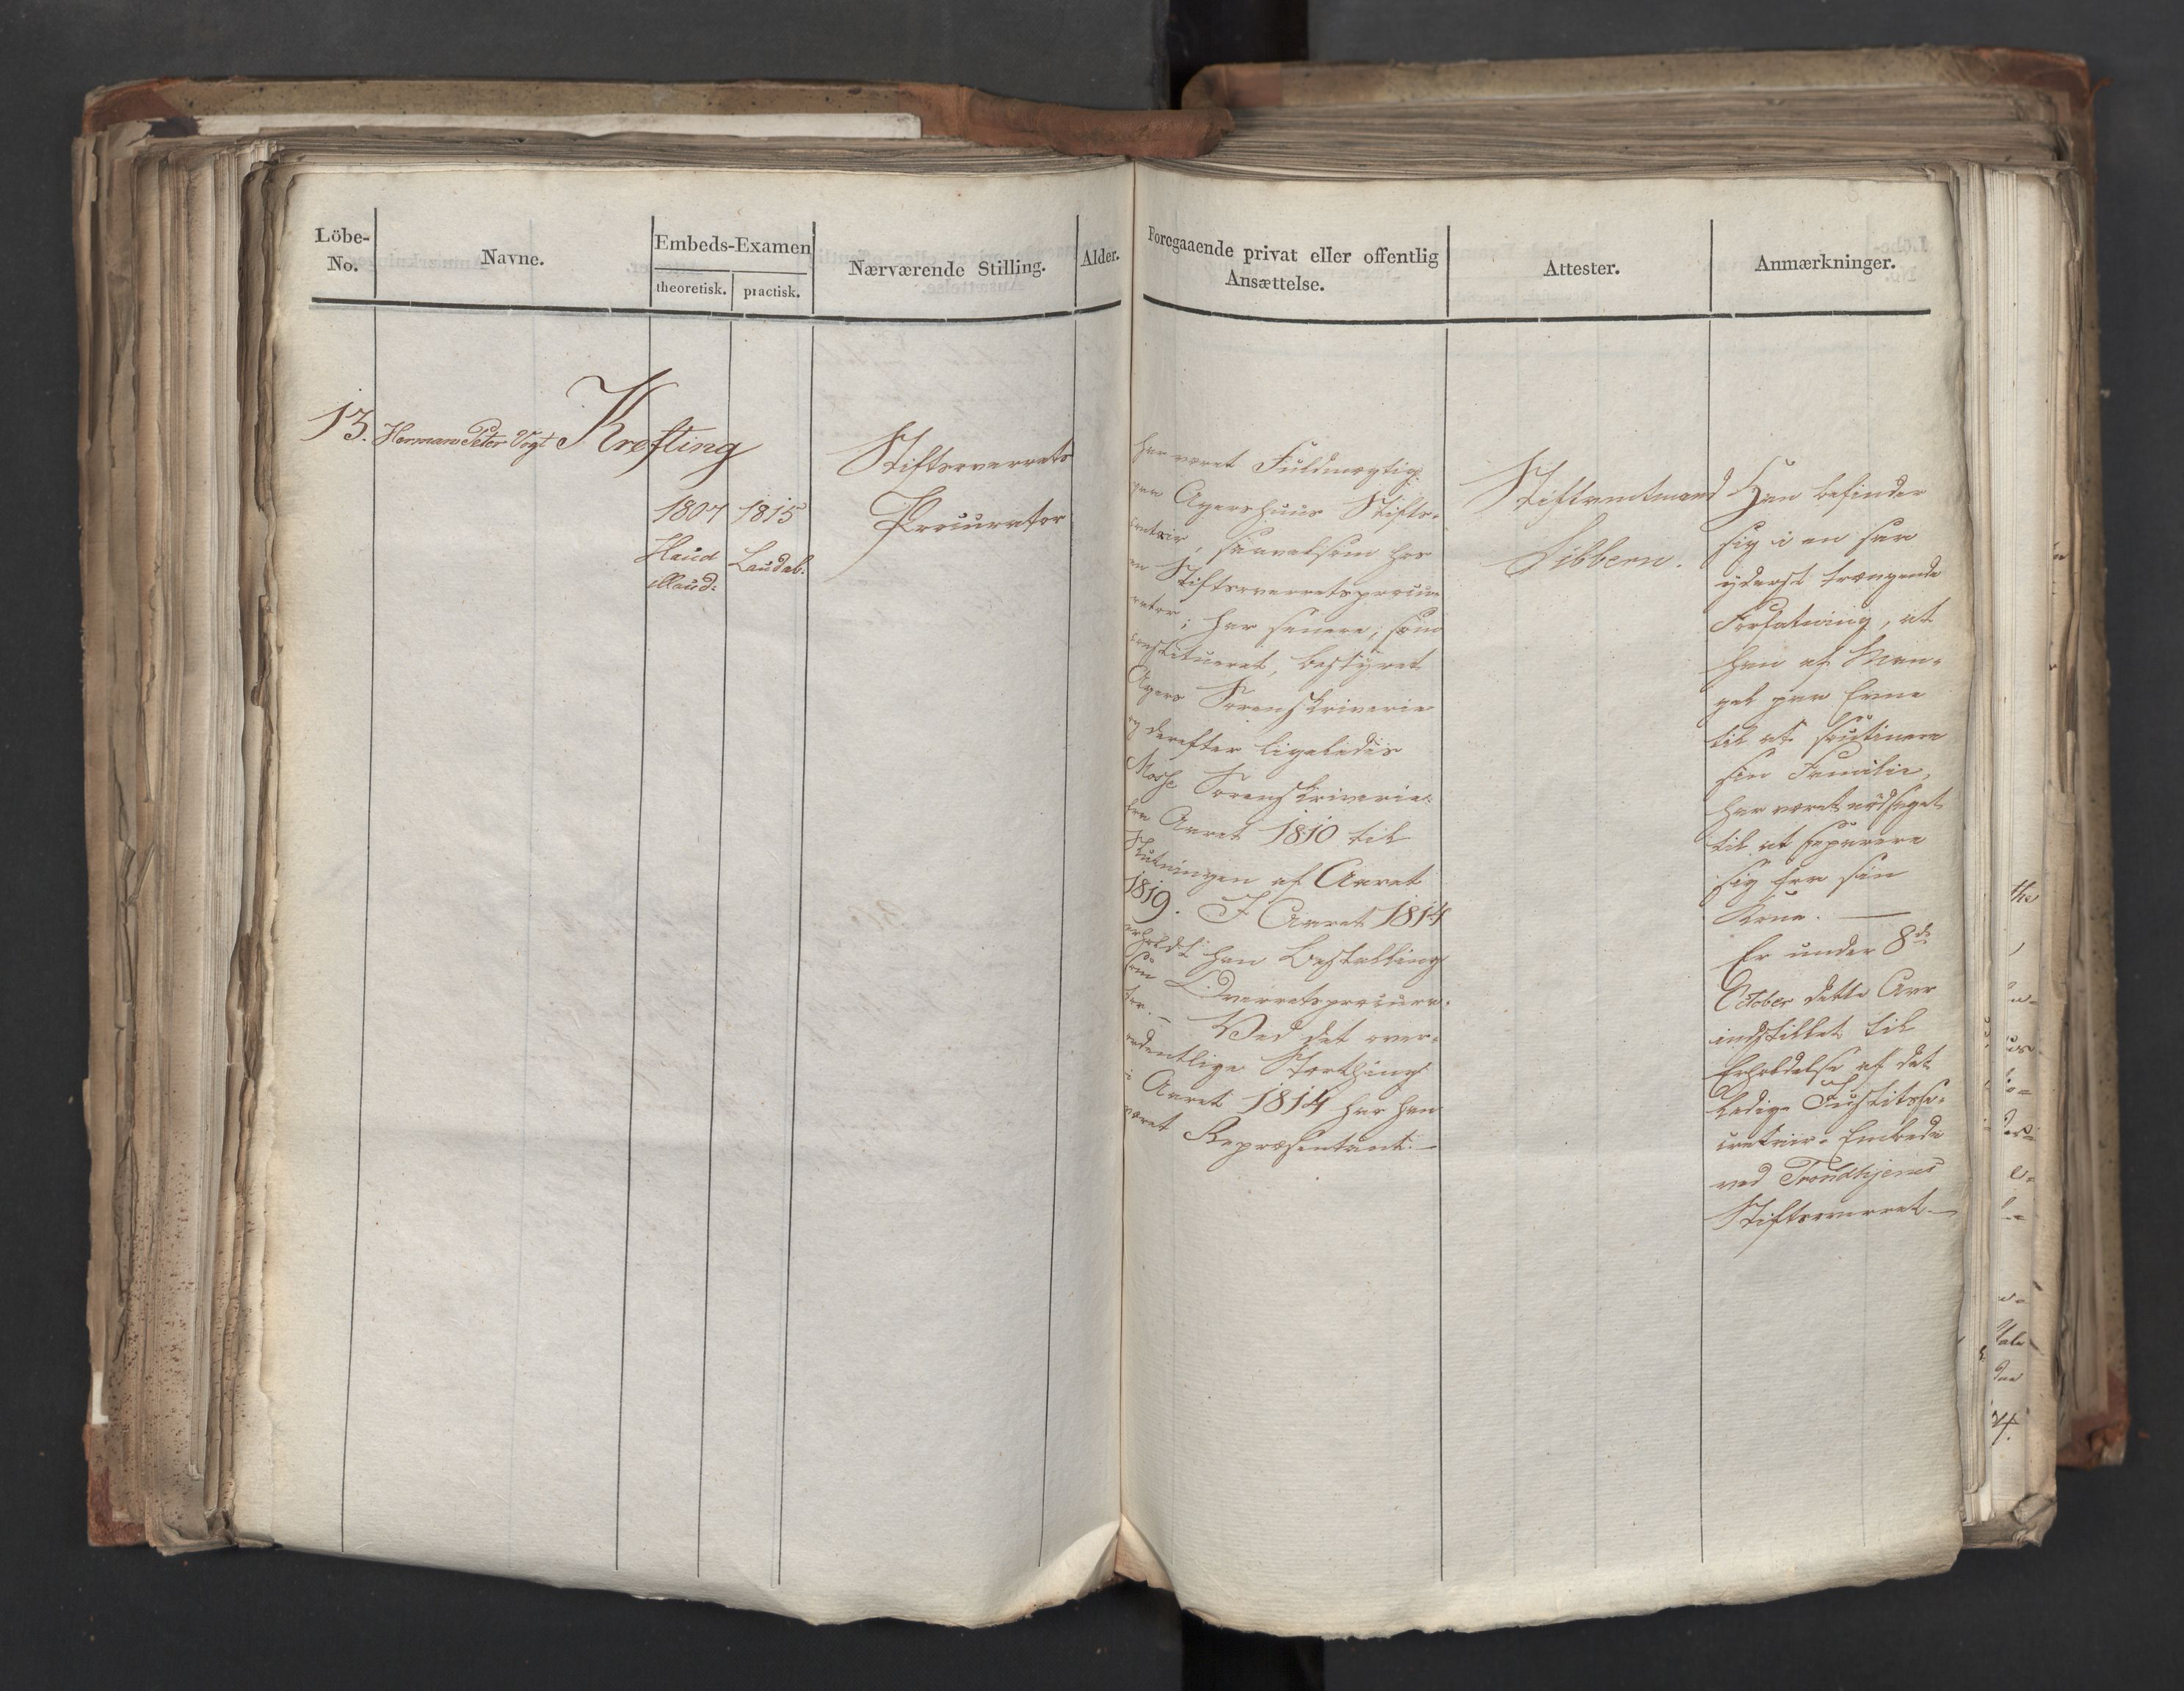 Löbe-
No.
Navne.
Embeds-Examen
theoretisk.
practisk.
Nærværende Stilling.
Alder.
Foregaaende privat eller offentlig
Ansættelse.
Attester.
Anmærkninger.
13.
Herman Peter Vogt Krefting
1807
Haud
illaud:
1815
Laudab:
Stiftsoverrets
Procurator
har været Fuldmægtig
paa Agershuus Stifts-
contoir, saavelsom hos
en Stiftsoverretsprocu
rator; har senere, som
constitueret, bestyret
Agers Sorenskriverie
og derefter ligeledes
Mosse Sorenskriverie
fra Aaret 1810 til
Slutningen af Aaret
1819. I Aaret 1814
erholdt han Bestalling
som Overretsprocura-
tor. — Ved det over-
ordentlige Storthing
i Aaret 1814 har han
været Repræsentant. —
Stiftamtmand
Sibbern.
Han befinder
sig i en saa
yderst trængende
Forfatning, at
han af Man-
gel paa Evne
til at soutinere
sin Familie,
har været nødsaget
til at separere
sig fra sin
Kone. —
Er under 8de
October dette Aar
indstillet til
Erholdelse af det
ledige Justitsse-
cretair-Embede
ved Trondhjems
Stiftsoverret. —